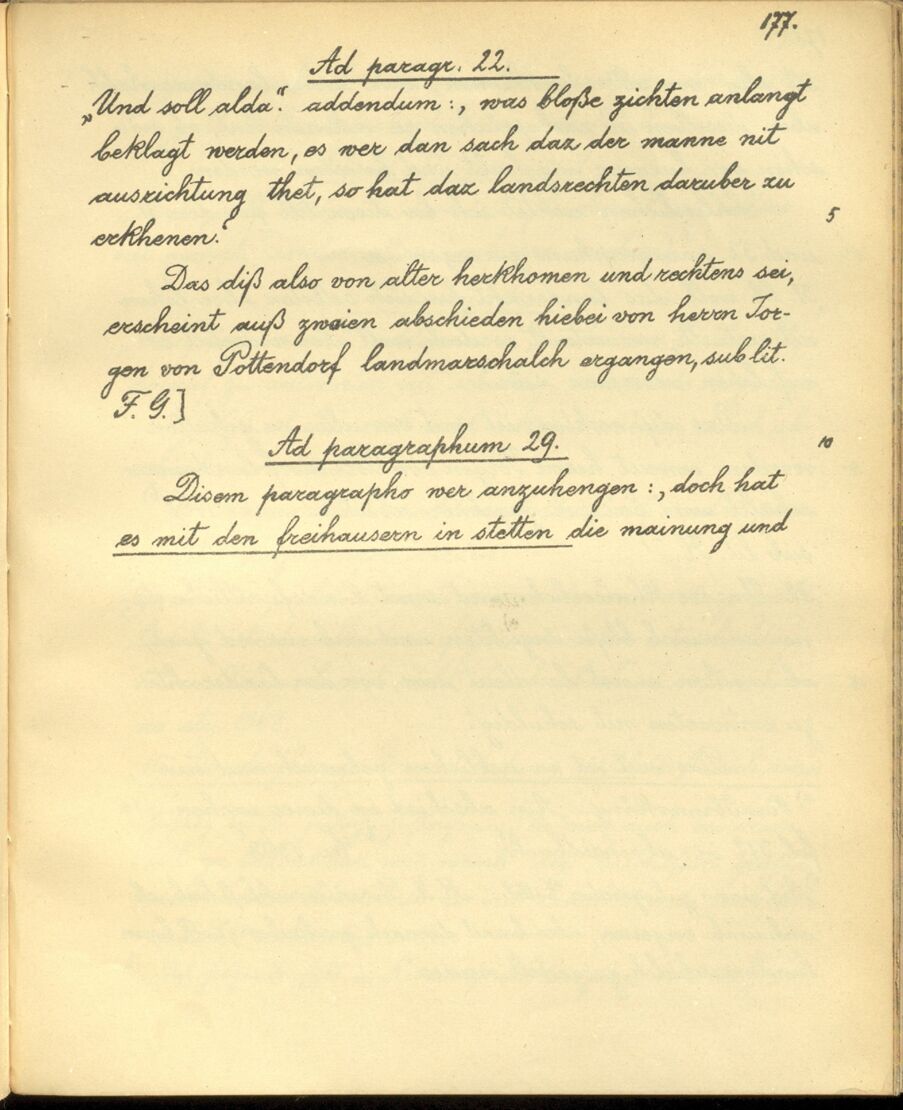 177.
Ad paragr. 22.
„Und soll alda“. addendum :, was bloße zichten anlangt
beklagt werden, es wer dan sach daz der manne nit
ausrichtung thet, so hat daz landsrechten daruber zu
5
erkhenen.“
Das diß also von alter herkhomen und rechtens sei,
erscheint auß zwaien abschieden hiebei von herrn Jor-
gen von Pottendorf landmarschalch ergangen, sub lit.
F. G.]
Ad paragraphum 29.
10
Disem paragrapho wer anzuhengen :, doch hat
es mit den freihausern in stetten die mainung und